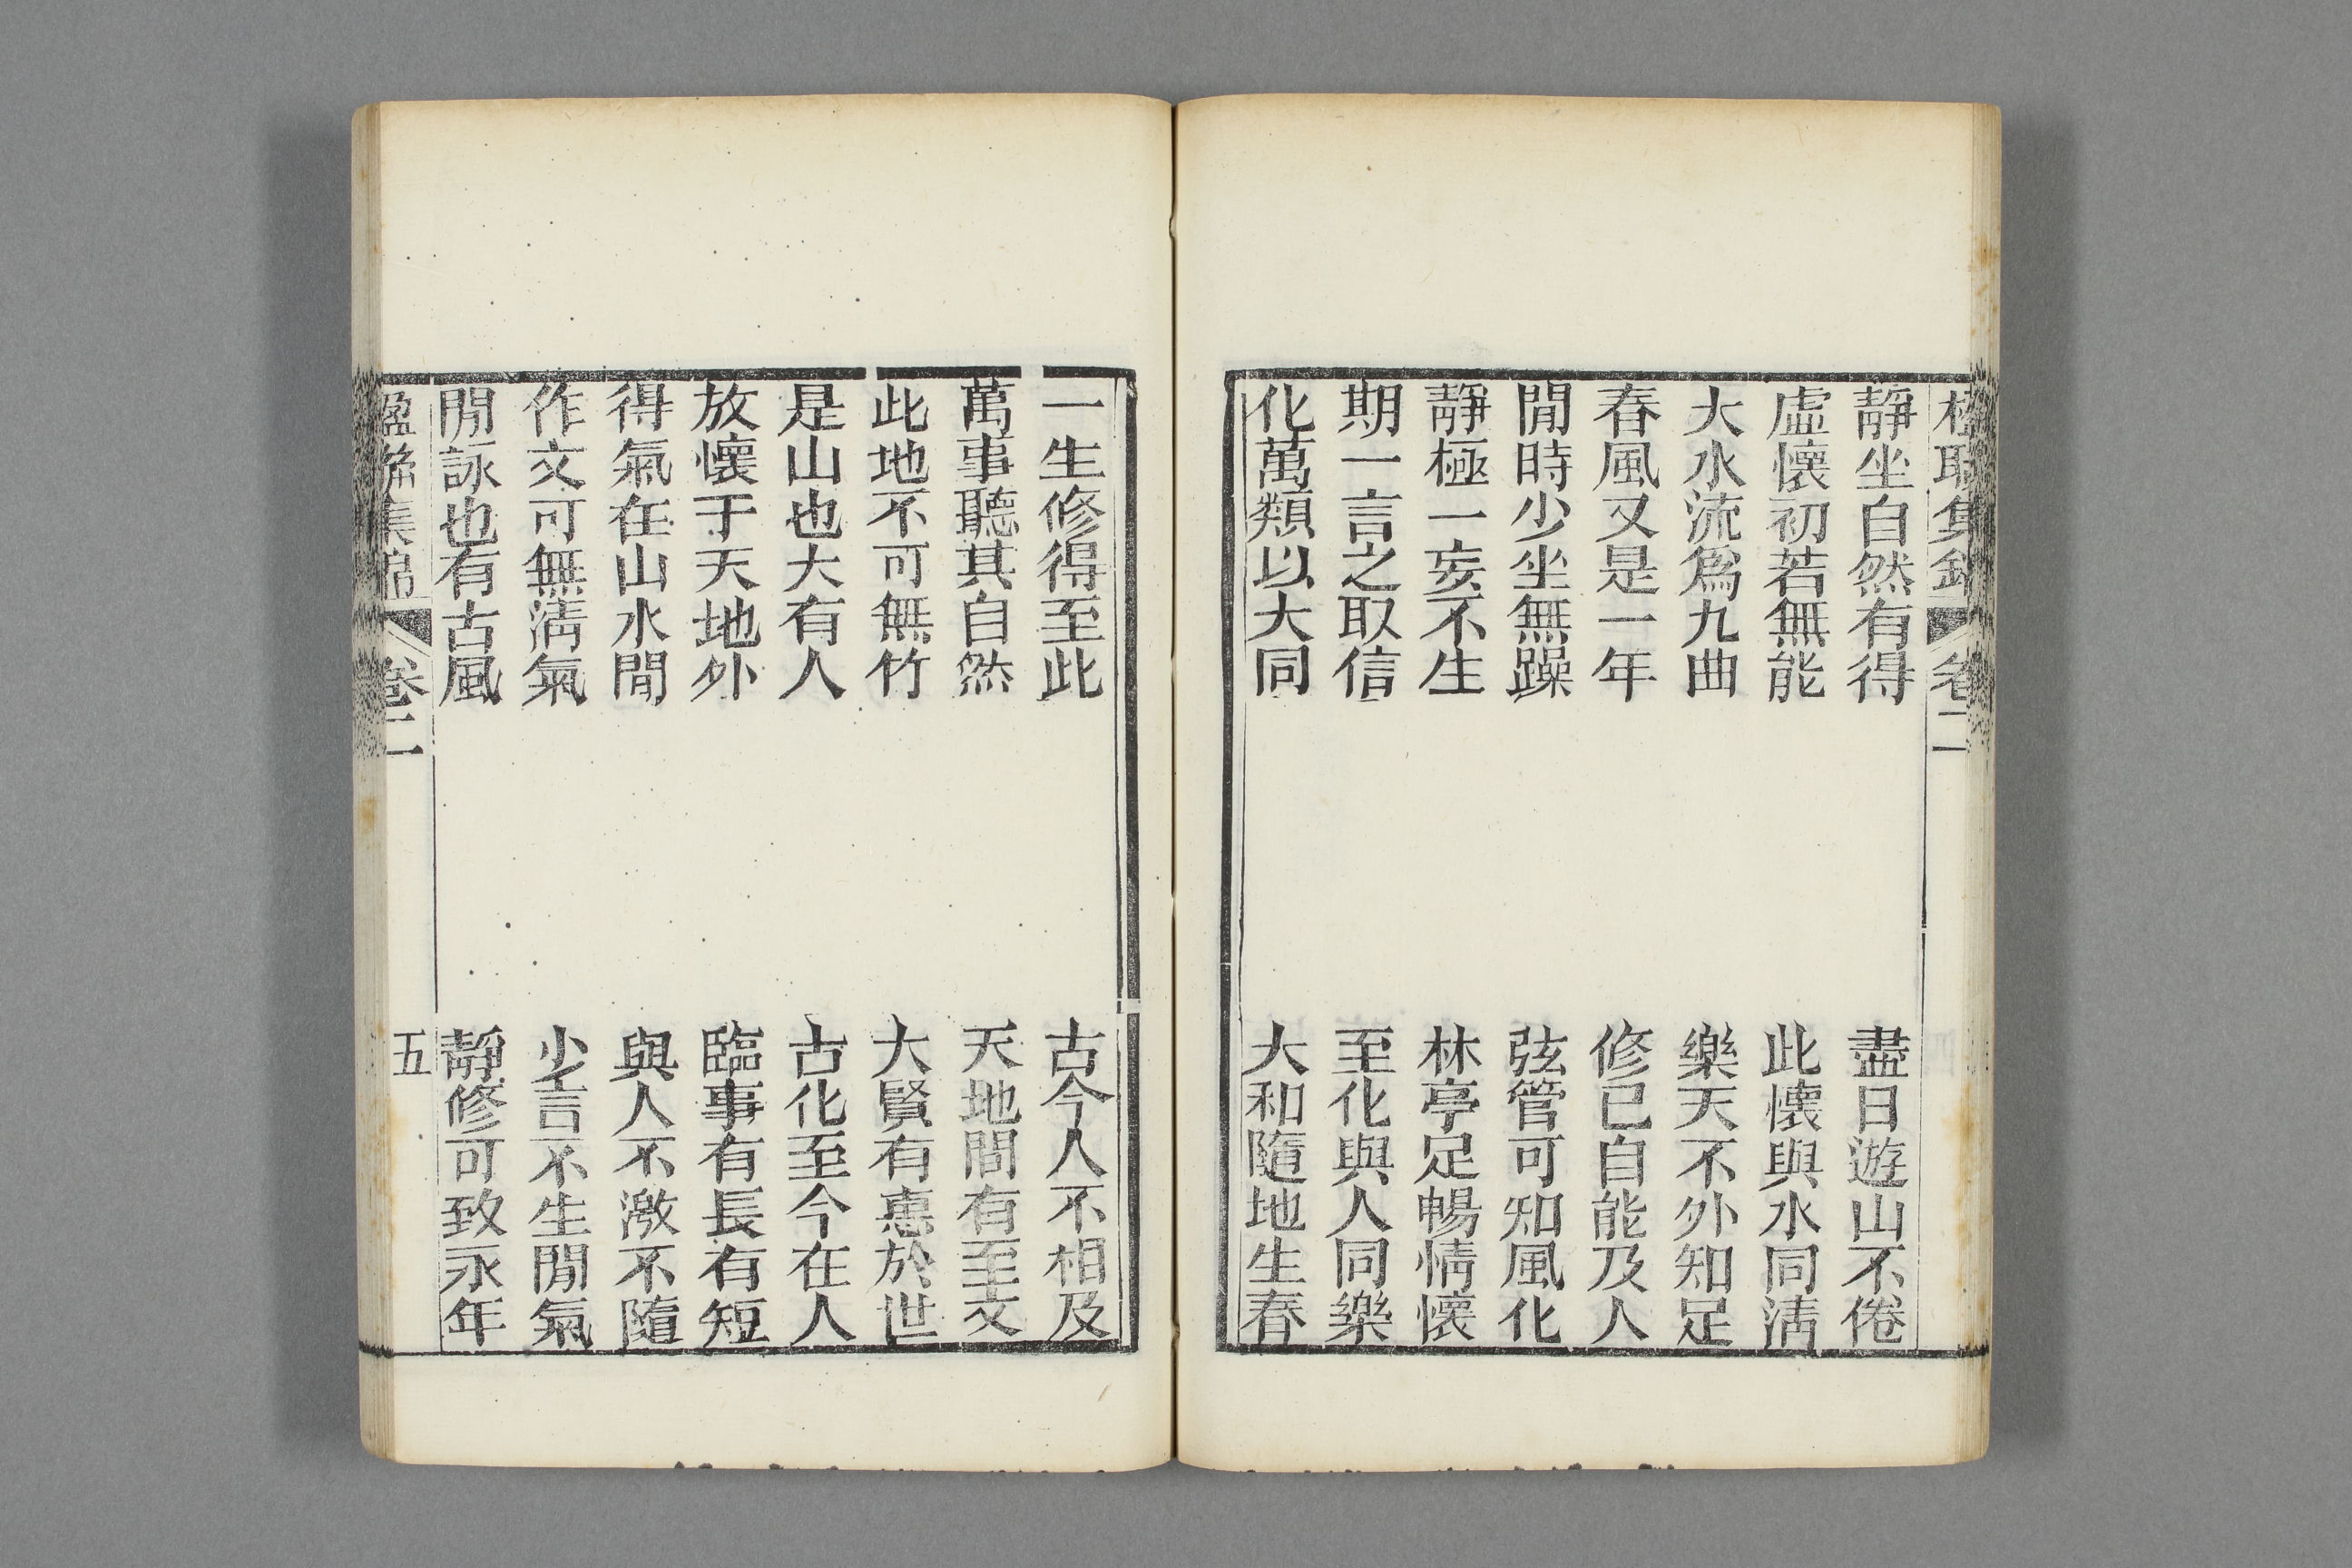 卷二
靜坐自然有得
盡日遊山不倦
虛懷初若無能
此懷與水同清
大水流爲九曲
樂天不外知足
春風又是一年
修已自能及人
閒時少坐無躁
弦管可知風化
靜極一妄不生
林亭足暢情懷
期一言之取信
至化與人同樂
化萬類以大同
大和隨地生春
一生修得至此
古今人不相及
萬事聽其自然
天地間有至文
此地不可無竹
大賢有惠於世
是山也大有人
古化至今在人
放懷于天地外
臨事有長有短
得氣在山水間
與人不激不隨
作文可無清氣
少言不生閒氣
閒詠也有古風
靜修可致永年
楹聯集錦
卷二
五